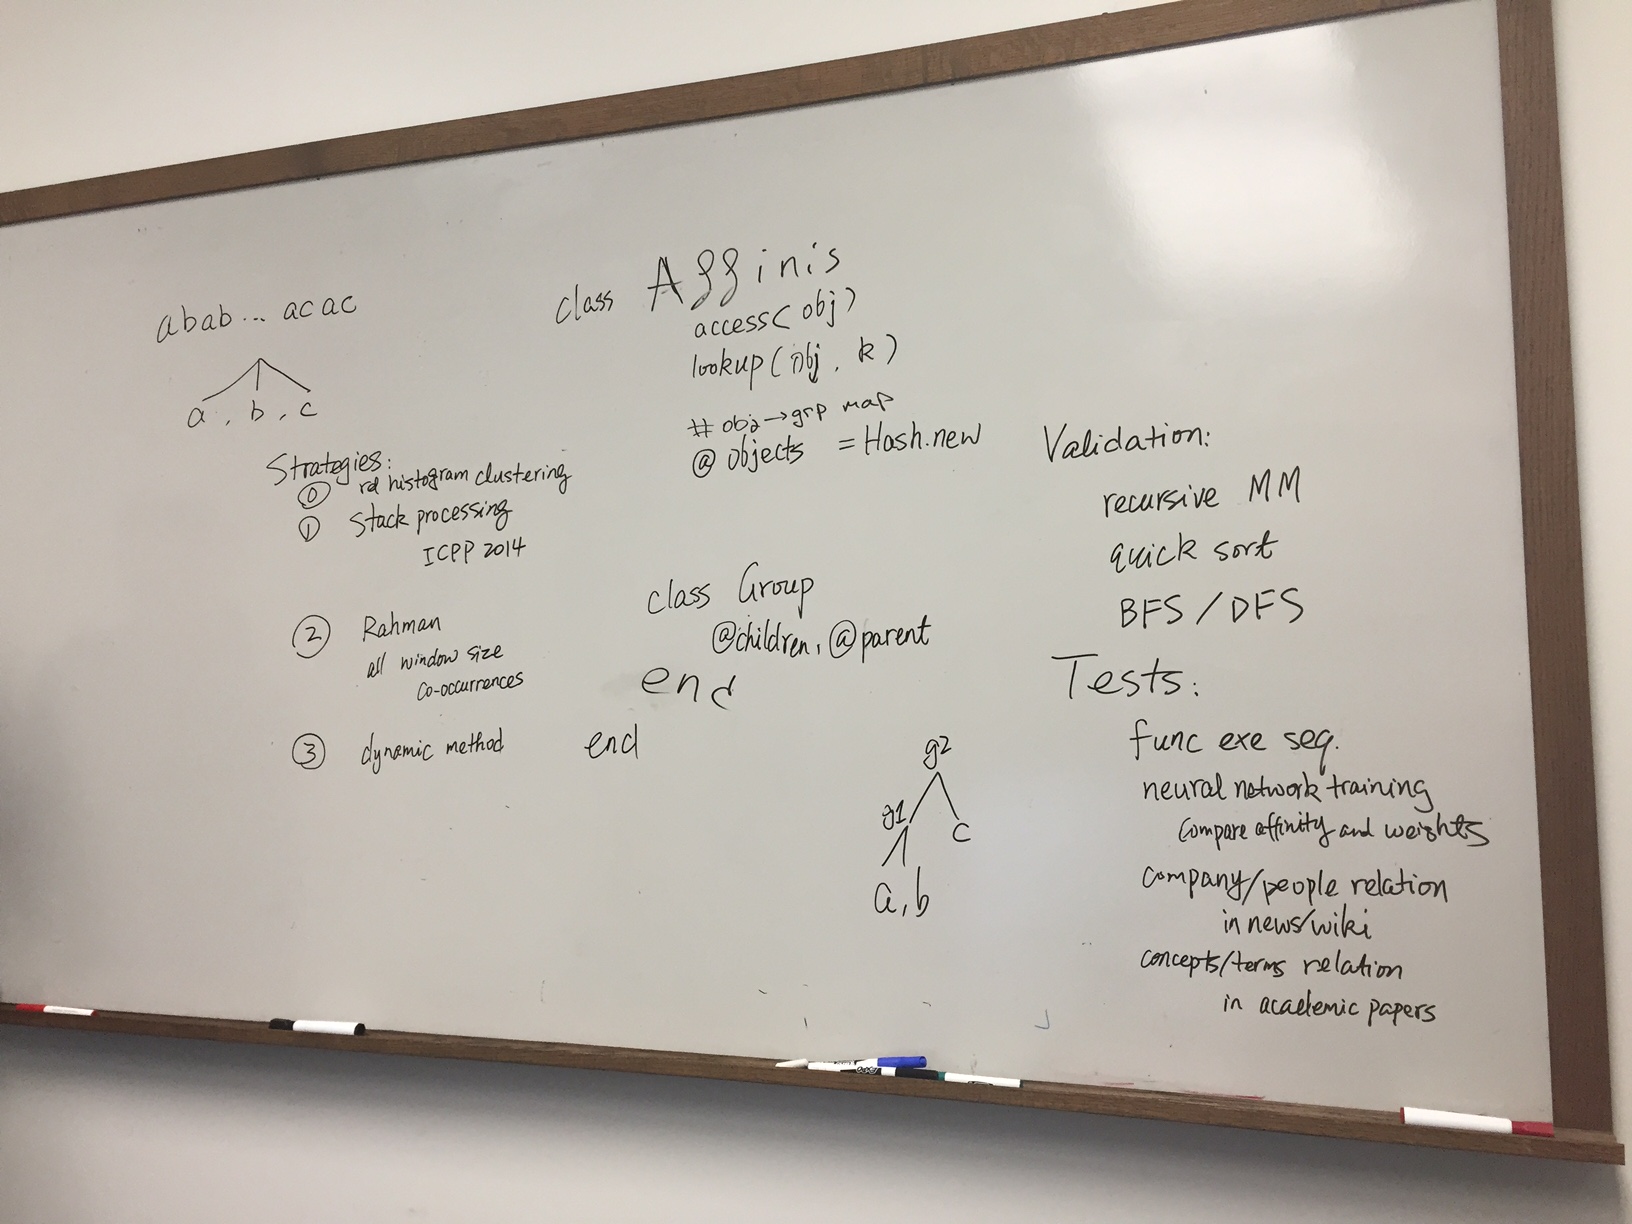 abab... acac
a, b, c
Strategies:
⓪ rd histogram clustering
① Stack processing
ICPP 2014
② Rahman
all window size
Co-occurrences
③ dynamic method
class Affinis
access(obj)
lookup(obj, k)
# obj→grp map
@objects = Hash.new
class Group
@children, @parent
end
end
g2
g1
c
a,b
Validation:
recursive MM
quick sort
BFS / DFS
Tests:
func exe seq.
neural network training
Compare affinity and weights
Company/people relation
in news/wiki
concepts/terms relation
in academic papers